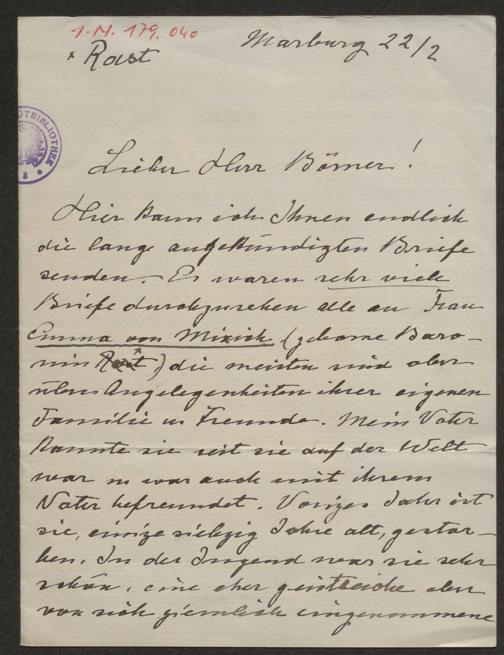 I.N. 179.040
× Rast
Marburg 22/2
STADTBIBLIOTHEK
Lieber Herr Börner!
Hier kann ich Ihnen endlich
die lange angekündigten Briefe
senden. Es waren sehr viele
Briefe durchzusehen alle an Frau
Emma von (geborne Baro-
nin Rast) die meisten sind aber
über Angelegenheiten ihrer eigenen
Familie u Freunde. Mein Vater
kannte sie seit sie auf der Welt
war u war auch mit ihrem
Vater befreundet. Voriges Jahr ist
sie, einige siebzig Jahre alt, gestor-
ben. In der Jugend war sie sehr
schön, eine eher aber
von sich ziemlich eingenommene